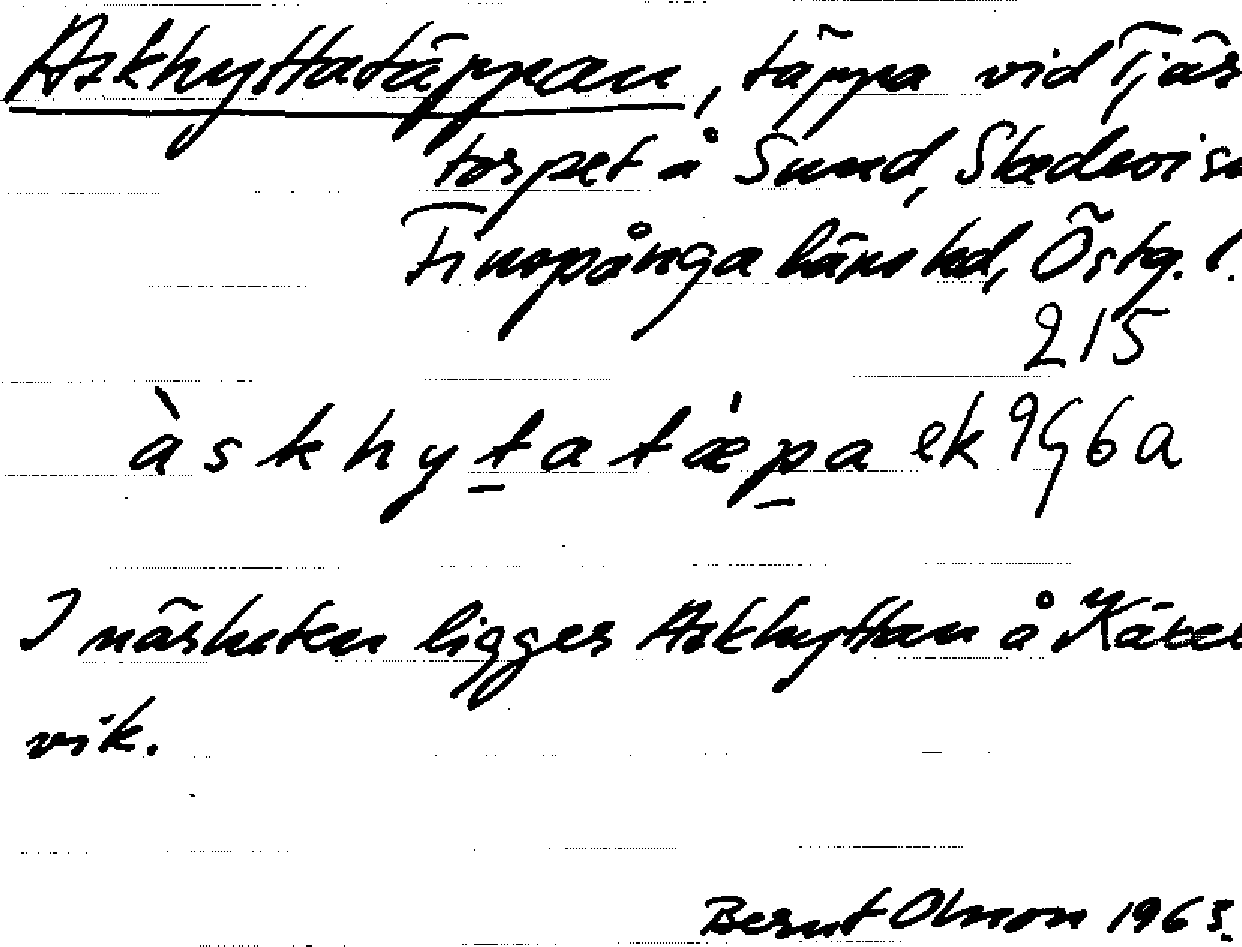 Askhyttatäppan, täppa vid Tjär
torpet å Sund, Skedevi sn
Finspånga länshd, Östg. l.
215
àskhytatæ̀pa ek 9G6a
I närheten ligger Askhyttan å Käxel
vik.
Bernt Olsson 1963.